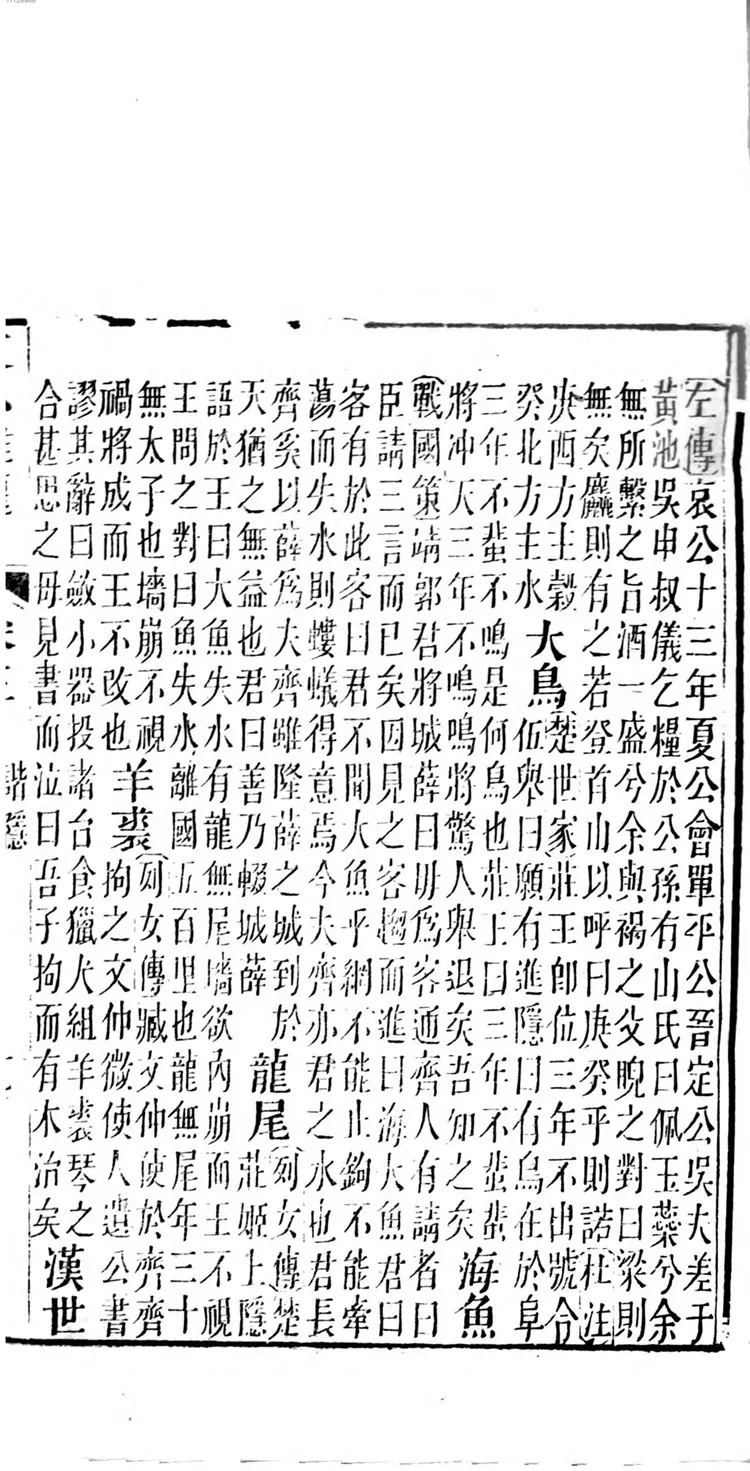 左傳哀公十三年夏公會單平公晉定公吳夫差于
黃池吳申叔儀乞糧於公孫有山氏曰佩玉蘂兮余
無所繫之旨酒一盛兮余與褐之父睨之對曰粱則
無矣麤則有之若登首山以呼曰庚癸乎則諾杜注
庚西方主穀
癸北方主水
大鳥
楚世家莊王卽位三年不出號令
伍舉曰願有進隱曰有鳥在於阜
三年不蜚不鳴是何鳥也莊王曰三年不蜚蜚
將冲天三年不鳴鳴將驚人舉退矣吾知之矣
海魚
戰國策靖郭君將城薛曰毋爲客通齊人有請者曰
臣請三言而已矣因見之客趨而進曰海大魚君曰
客有於此客曰君不聞大魚乎網不能止鉤不能牽
蕩而失水則螻蟻得意焉今夫齊亦君之水也君長
齊奚以薛爲夫齊雖隆薛之城到於
天猶之無益也君曰善乃輟城薛
龍尾
列女傳楚
莊姬上隱
語於王曰大魚失水有龍無尾墻欲內崩而王不視
王問之對曰魚失水離國五百里也龍無尾年三十
無太子也墻崩不視
禍將成而王不改也
羊裘
列女傳臧文仲使於齊齊
拘之文仲微使人遺公書
謬其辭曰斂小器投諸台食獵犬組羊裘琴之
合甚思之毋見書而泣曰吾子拘而有木治矣
漢世
諧隱